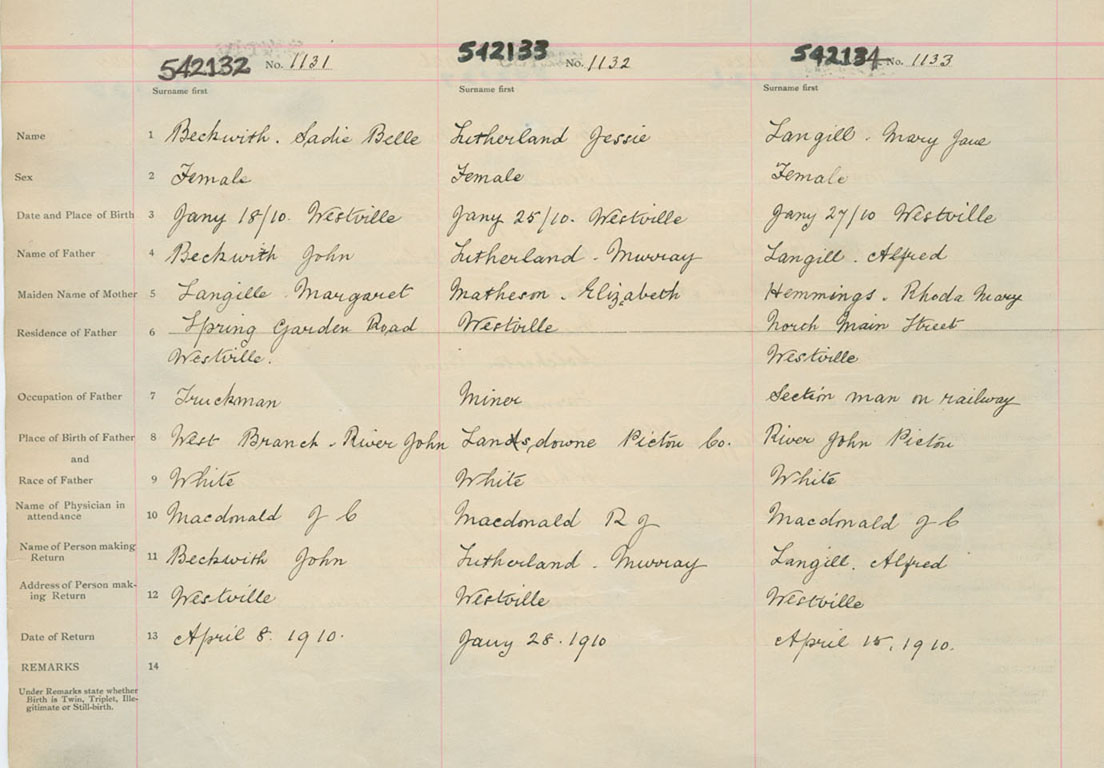 542132 No. 1131 542133 No. 1132 542134 No. 1133
Surname first Surname first Surname first
Name 1 Beckwith. Sadie Belle Sutherland Jessie Langill. Mary Jane
Sex 2 Female Female Female
Date and Place of Birth 3 Jany 18/10. Westville Jany 25/10. Westville Jany 27/10 Westville
Name of Father 4 Beckwith John Sutherland - Murray Langill. Alfred
Maiden Name of Mother 5 Langille Margaret Matheson. Elizabeth Hemmings. Rhoda Mary
Residence of Father 6 Spring Garden Road Westville North Main Street
Westville. Westville
Occupation of Father 7 Truckman Miner Section man on railway
Place of Birth of Father 8 West Branch - River John Landsdowne Pictou Co. River John Pictou
and
Race of Father 9 White White White
Name of Physician in
attendance 10 Macdonald J C Macdonald R J Macdonald J C
Name of Person making
Return 11 Beckwith John Sutherland - Murray Langill. Alfred
Address of Person mak-
ing Return 12 Westville Westville Westville
Date of Return 13 April 8. 1910. Jany 28. 1910 April 15, 1910.
REMARKS 14
Under Remarks state whether
Birth is Twin, Triplet, Ille-
gitimate or Still-birth.